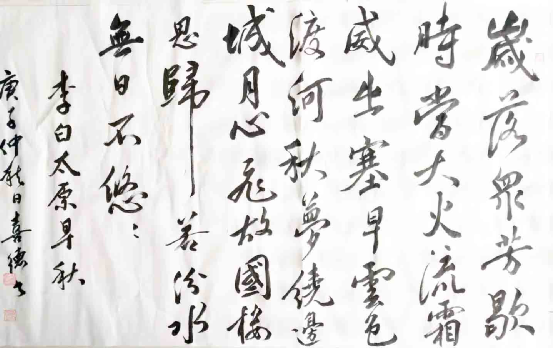 歲落眾芳歇
時當大火流霜
威出塞早雲色
渡河秋夢繞邊
城月心飛故國樓
思歸若汾水
無日不悠〻
李白太原早秋
庚子仲秋日喜德书